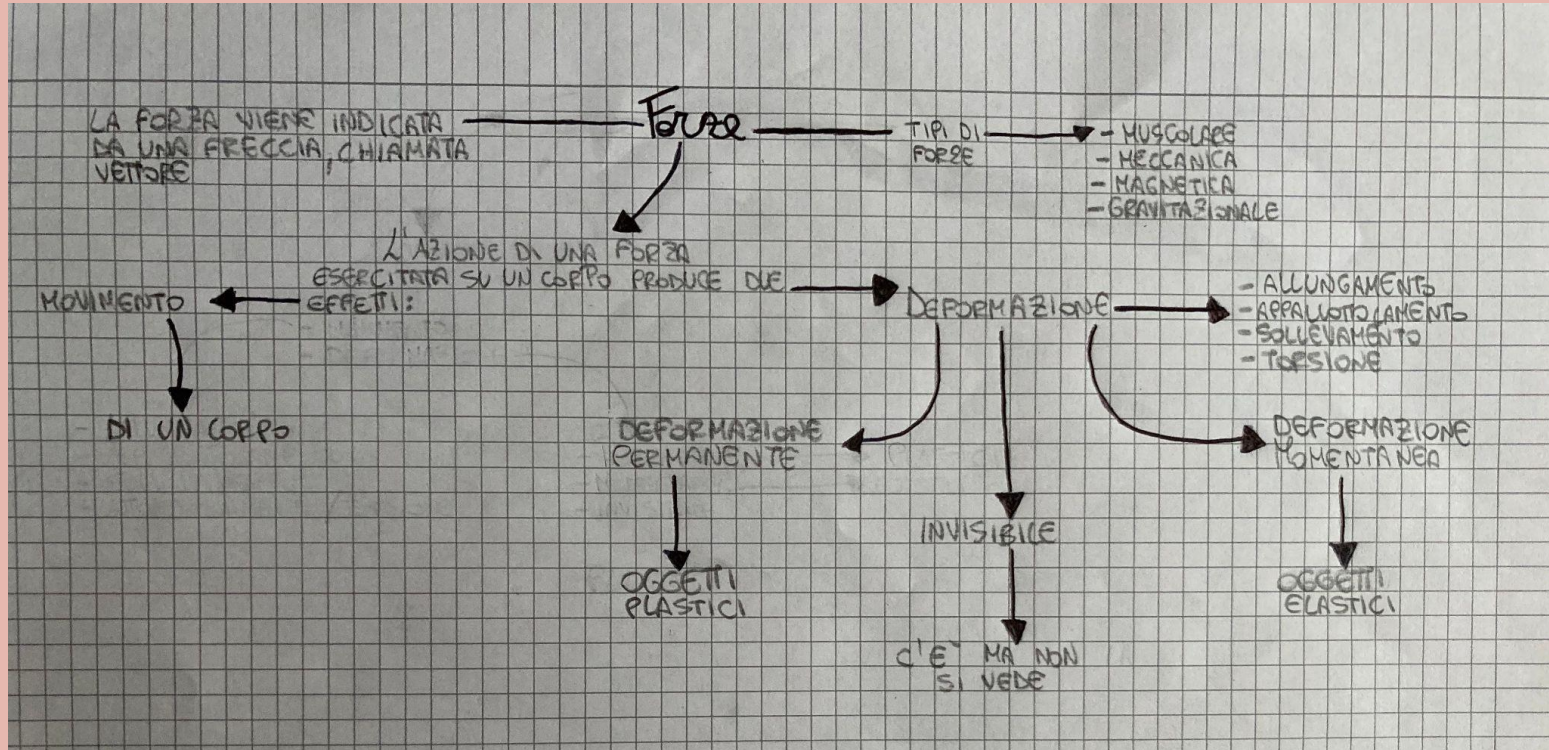 Forze
LA FORZA VIENE INDICATA
DA UNA FRECCIA, CHIAMATA
VETTORE
TIPI DI
FORZE
- MUSCOLARE
- MECCANICA
- MAGNETICA
- GRAVITAZIONALE
L'AZIONE DI UNA FORZA
ESERCITATA SU UN CORPO PRODUCE DUE
EFFETTI:
MOVIMENTO
DI UN CORPO
DEFORMAZIONE
- ALLUNGAMENTO
- APPALLOTTOLAMENTO
- SOLLEVAMENTO
- TORSIONE
DEFORMAZIONE
PERMANENTE
OGGETTI
PLASTICI
INVISIBILE
C'E` MA NON
SI VEDE
DEFORMAZIONE
MOMENTANEA
OGGETTI
ELASTICI